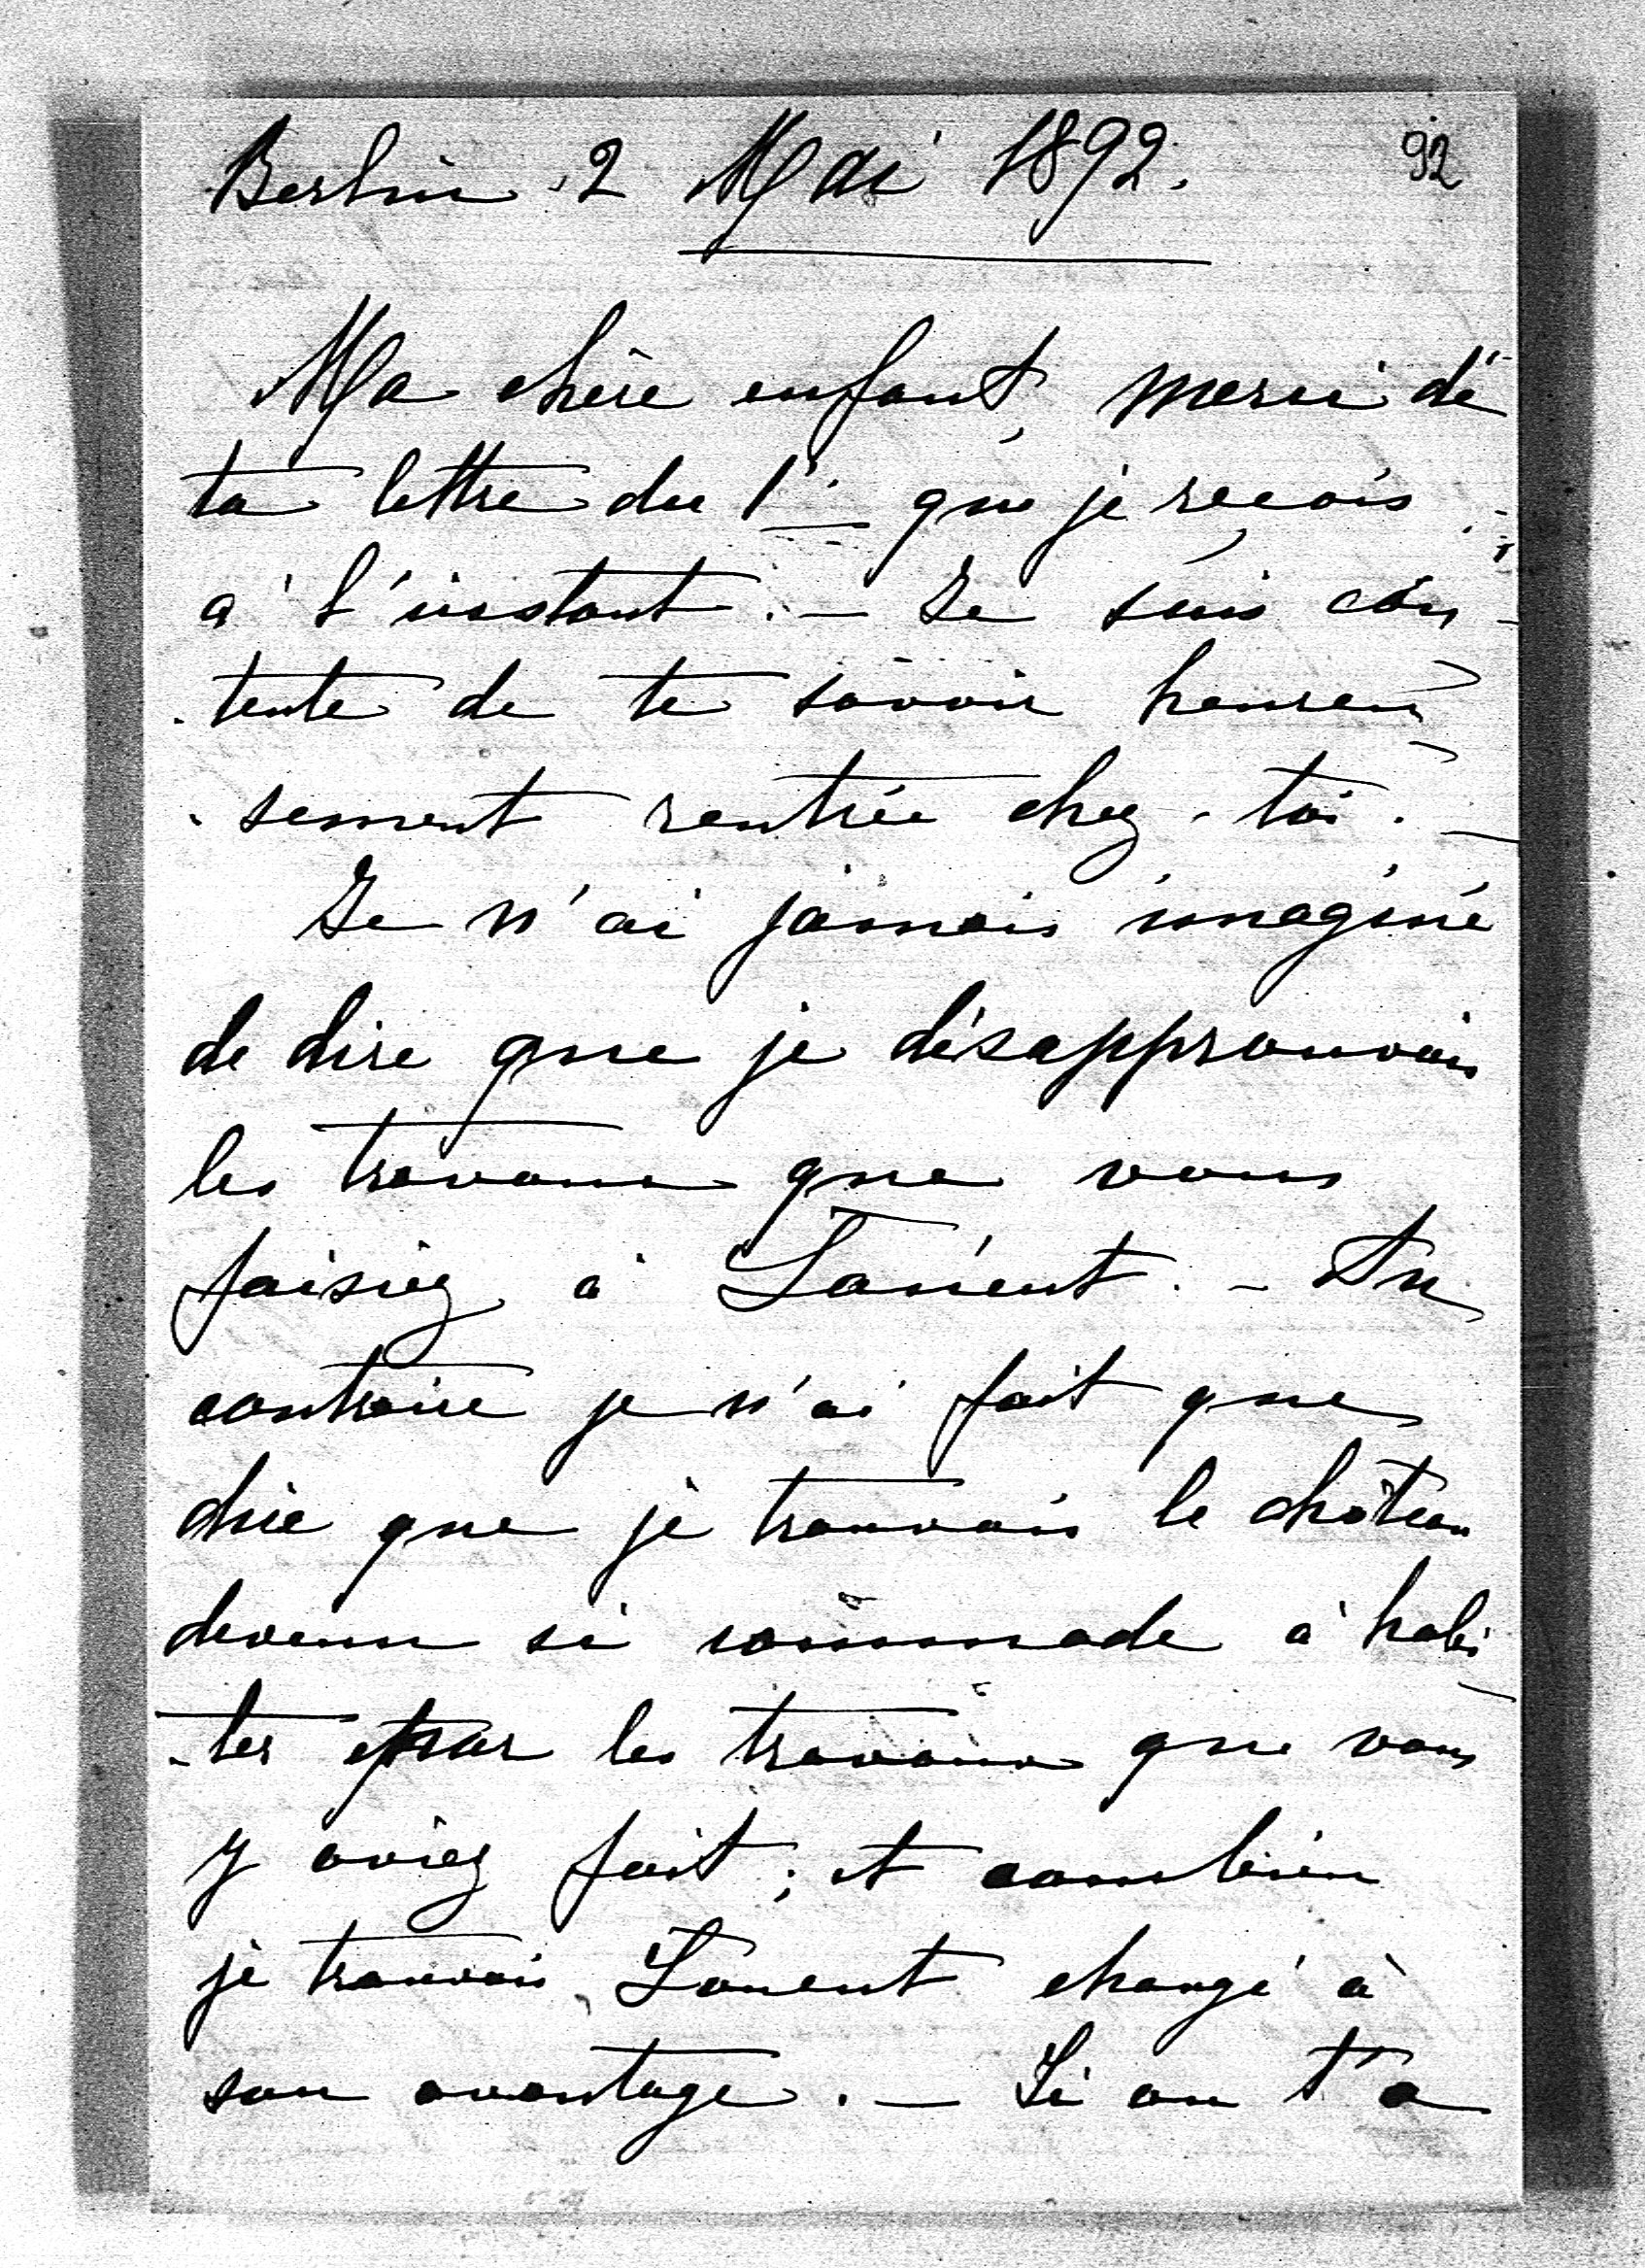 Berlin 2 Mai 1892.
92
Ma chère enfant, merci de
ta lettre du 1r que je reçois
à l'instant. — Je suis con-
tente de te savoir heureu-
sement rentrée chez-toi. —
Je n'ai jamais imaginé
de dire que je désapprouvais
les travaux que vous
faisiez à — Au
contraire je n'ai fait que
dire que je trouvais le château
devenu si commode à habi-
-ter par les travaux que vous
y aviez fait ; et combien
je trouvais changé à
son avantage. — Si on t'a